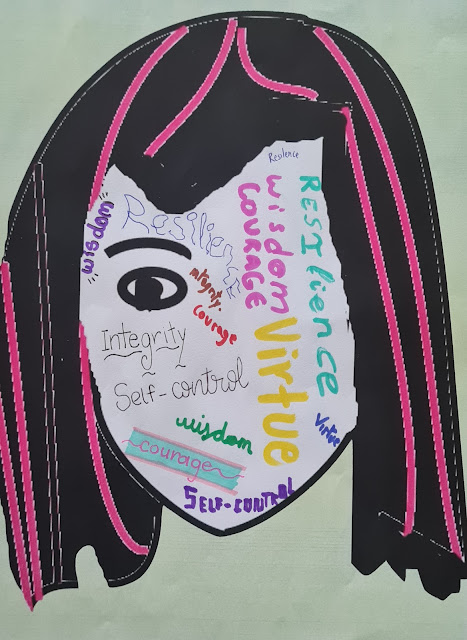 Resilience
wisdom
Resilience
wisdom
COURAGE
courage
Integrity
Self-control
Virtue
wisdom
Virtue
courage
SELF-CONTROL